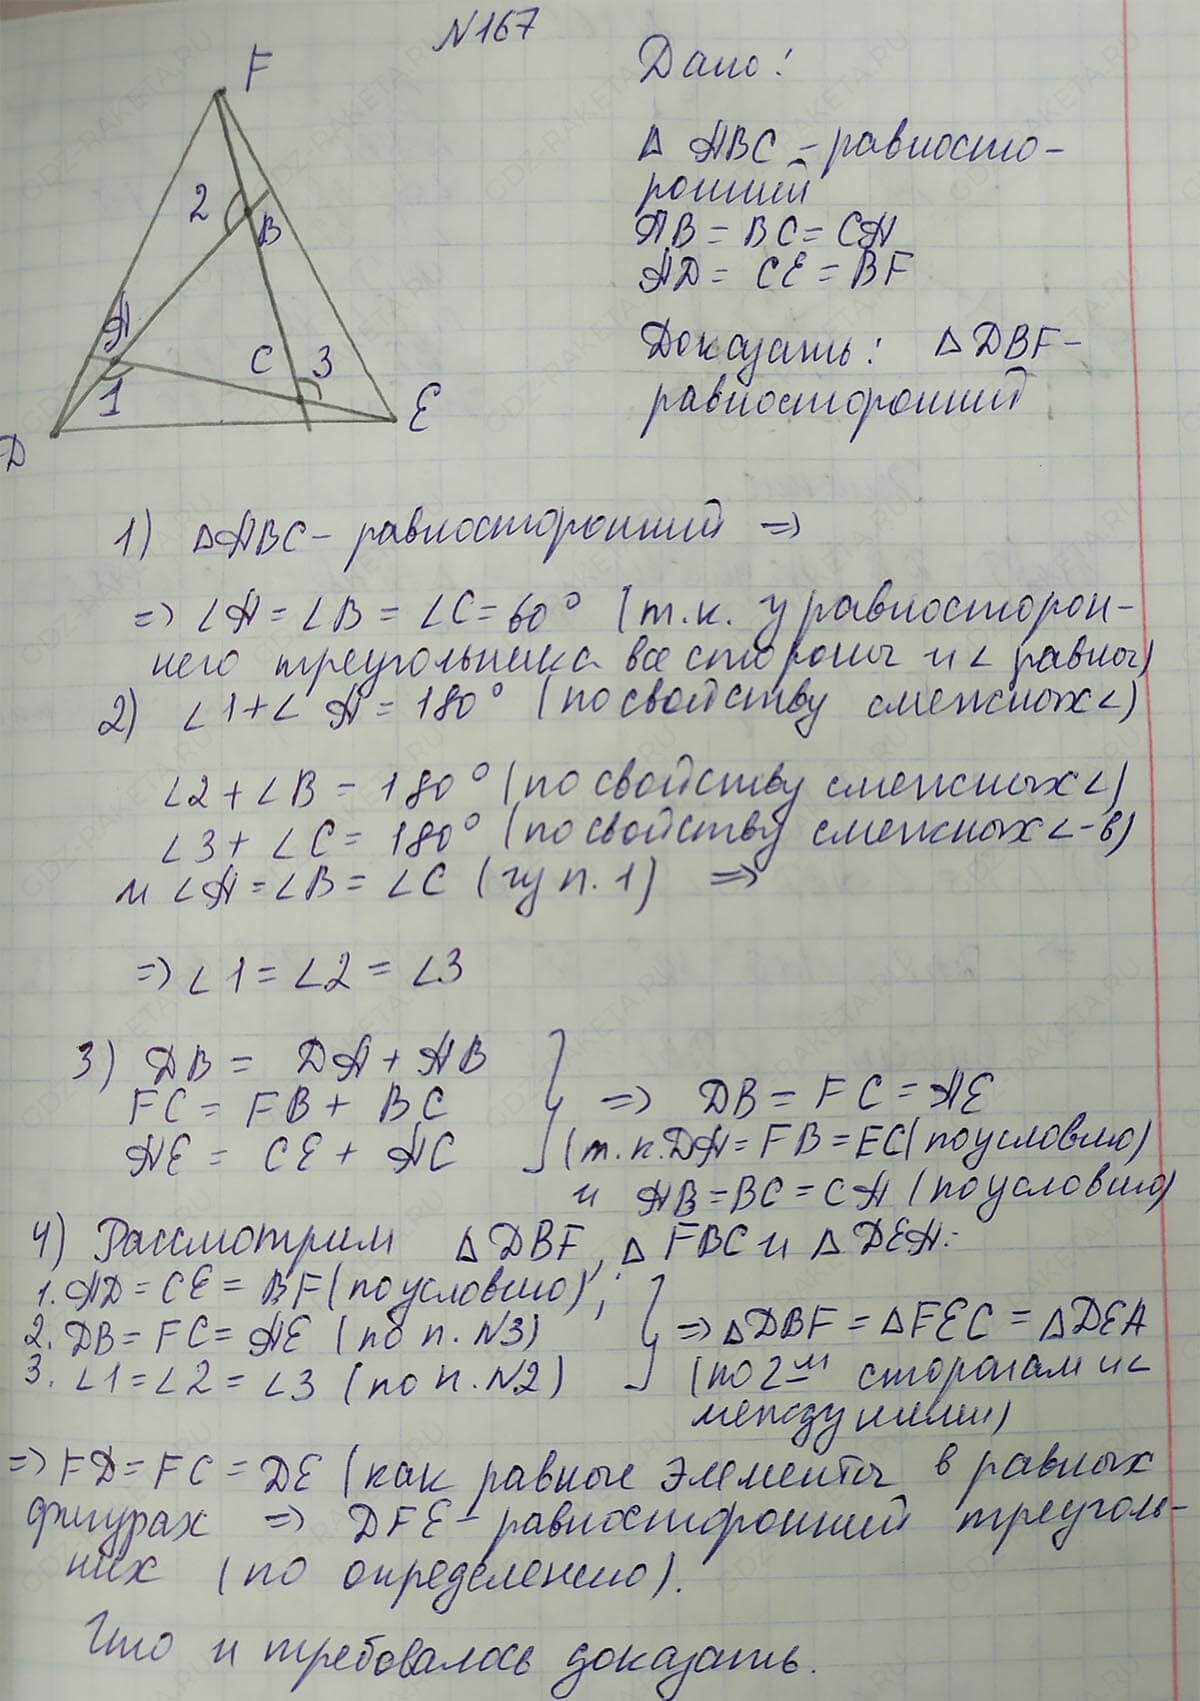 N167
F
2
B
A
C 3
1
D
E
Дано:
Δ ABC – равносто-
ронний
AB = BC = CA
AD = CE = BF
Доказать: Δ DBF –
равносторонний
1) ΔABC – равносторонний =>
=> ∠A = ∠B = ∠C = 60° (т.к. у равносторон-
него треугольника все стороны и ∠ равны)
2) ∠1 + ∠A = 180° (по свойству смежных ∠)
∠2 + ∠B = 180° (по свойству смежных ∠)
∠3 + ∠C = 180° (по свойству смежных ∠-в)
и ∠A = ∠B = ∠C (из п. 1) =>
=> ∠1 = ∠2 = ∠3
3) DB = DA + AB
FC = FB + BC } => DB = FC = AE
AE = CE + AC (т.к. DA = FB = EC (по условию)
и AB = BC = CA (по условию)
4) Рассмотрим Δ DBF, Δ FBC и Δ DEA:
1. AD = CE = BF (по условию);
2. DB = FC = AE (по п. N3) } => ΔDBF = ΔFEC = ΔDEA
3. ∠1 = ∠2 = ∠3 (по п. N2) (по 2м сторонам и ∠
между ними)
=> FD = FC = DE (как равные элементы в равных
фигурах => DFE – равносторонний треуголь-
ник (по определению).
Что и требовалось доказать.